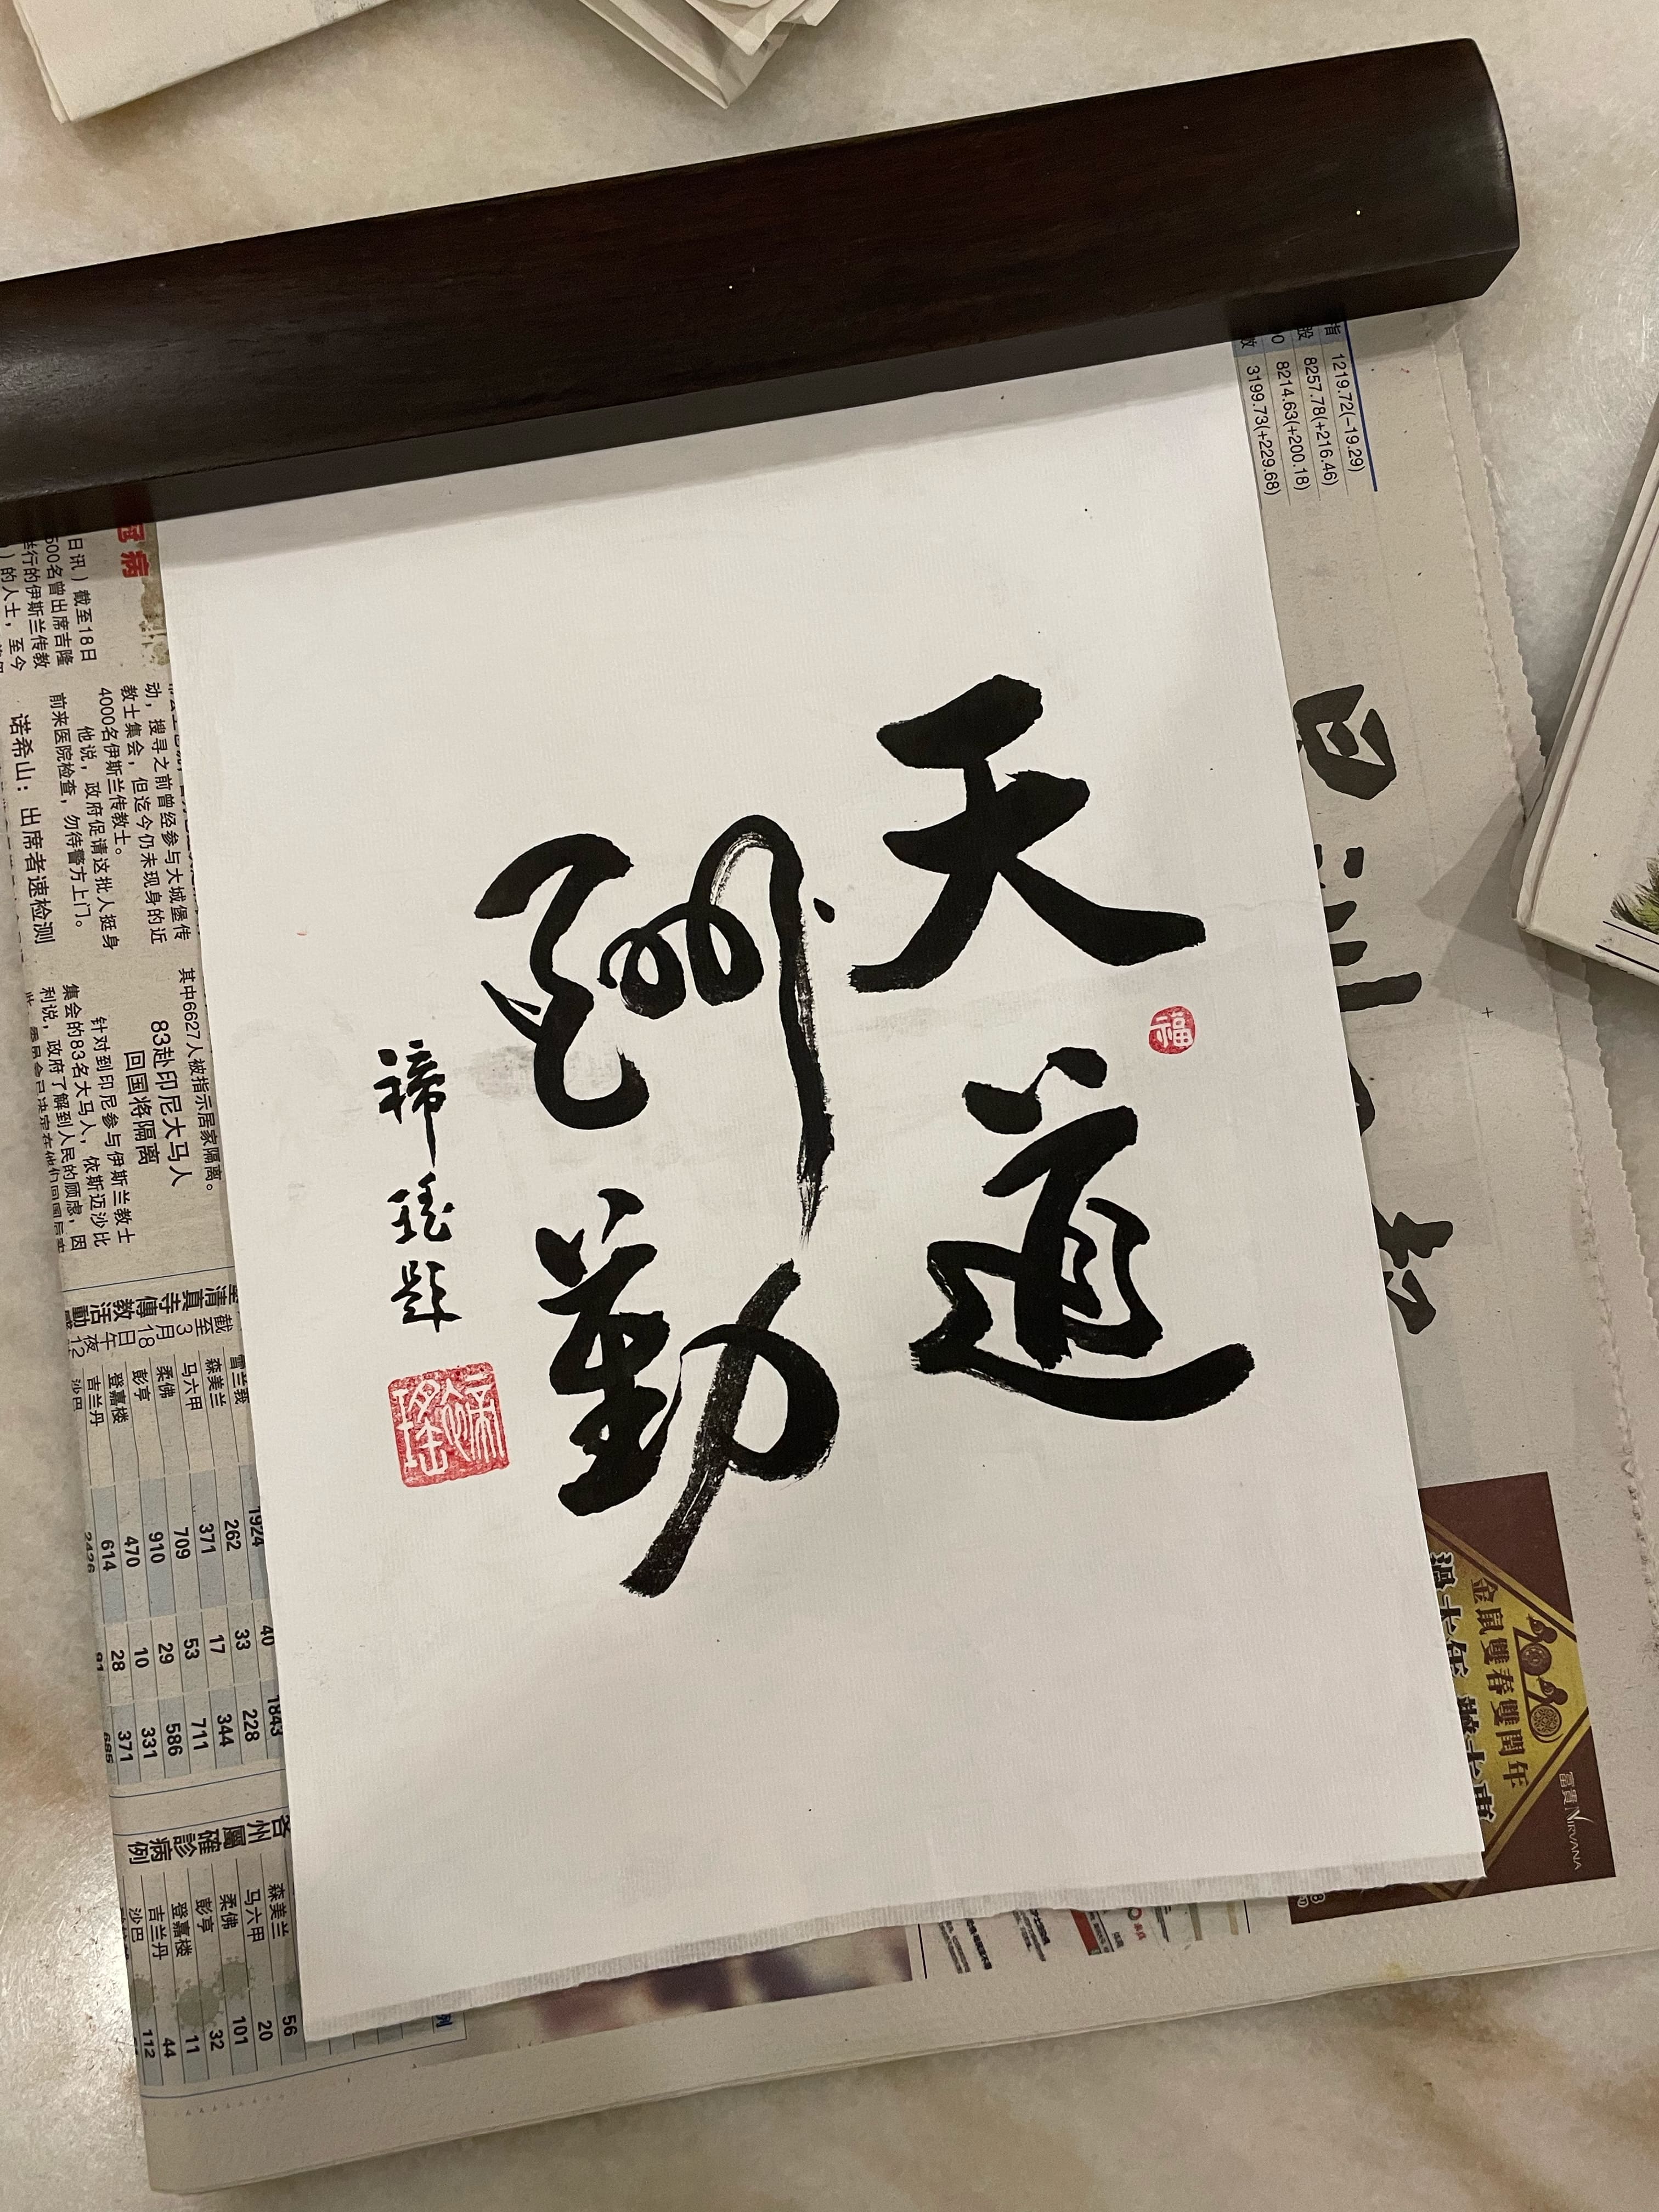 天道
酬勤
禘瑤題
福
指 1219.72(-19.29)
股 8257.78(+216.46)
0 8214.63(+200.18)
数 3199.73(+229.68)
冠病
日讯）截至18日
500名曾出席吉隆
举行的伊斯兰传教
）的人士，至今
动，搜寻之前曾经参与大城堡传
教士集会，但迄今仍未现身的近
4000名伊斯兰传教士。
他说，政府促请这批人挺身
前来医院检查，勿待警方上门。
诺希山：出席者速检测
其中6627人被指示居家隔离。
83赴印尼大马人
回国将隔离
针对到印尼参与伊斯兰教士
集会的83名大马人，依斯迈沙比
利说，政府了解到人民的顾虑，因
清真寺傳教活動
截至3月18日午夜12
森美兰 262 33 228
马六甲 371 17 344
柔佛 709 53 711
彭亨 910 29 586
登嘉楼 470 10 331
吉兰丹 614 28 371
沙巴
1924 40 1843
各州屬確診病例
森美兰 56
马六甲 20
柔佛 101
彭亨 32
登嘉楼 11
吉兰丹 44
沙巴 112
金鼠雙春雙閏年
富貴 NIRVANA